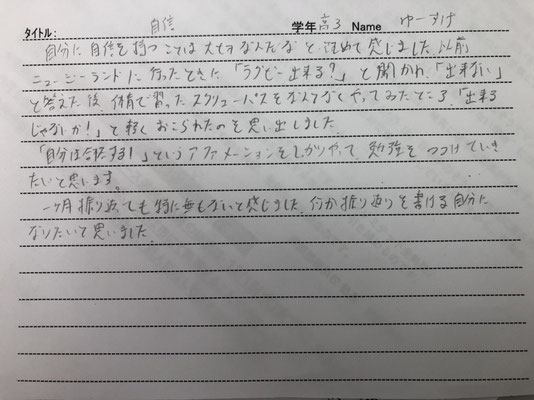 タイトル: 自信 学年 高3 Name ゆーすけ
自分に自信を持つことは大切なんだなと改めて感じました。以前
ニュージーランドに行ったときに「ラグビー出来る?」と聞かれ、「出来ない」
と答えた後、体育で習ったスクリューパスをなんとなくやってみたところ、「出来る
じゃないか!」と軽くおこられたのを思い出しました。
「自分は合格する!」というアファメーションをしっかりやって、勉強をつづけていき
たいと思います。
一ヶ月振り返っても特に無もないと感じました。何か振り返りを書ける自分に
なりたいと思いました。